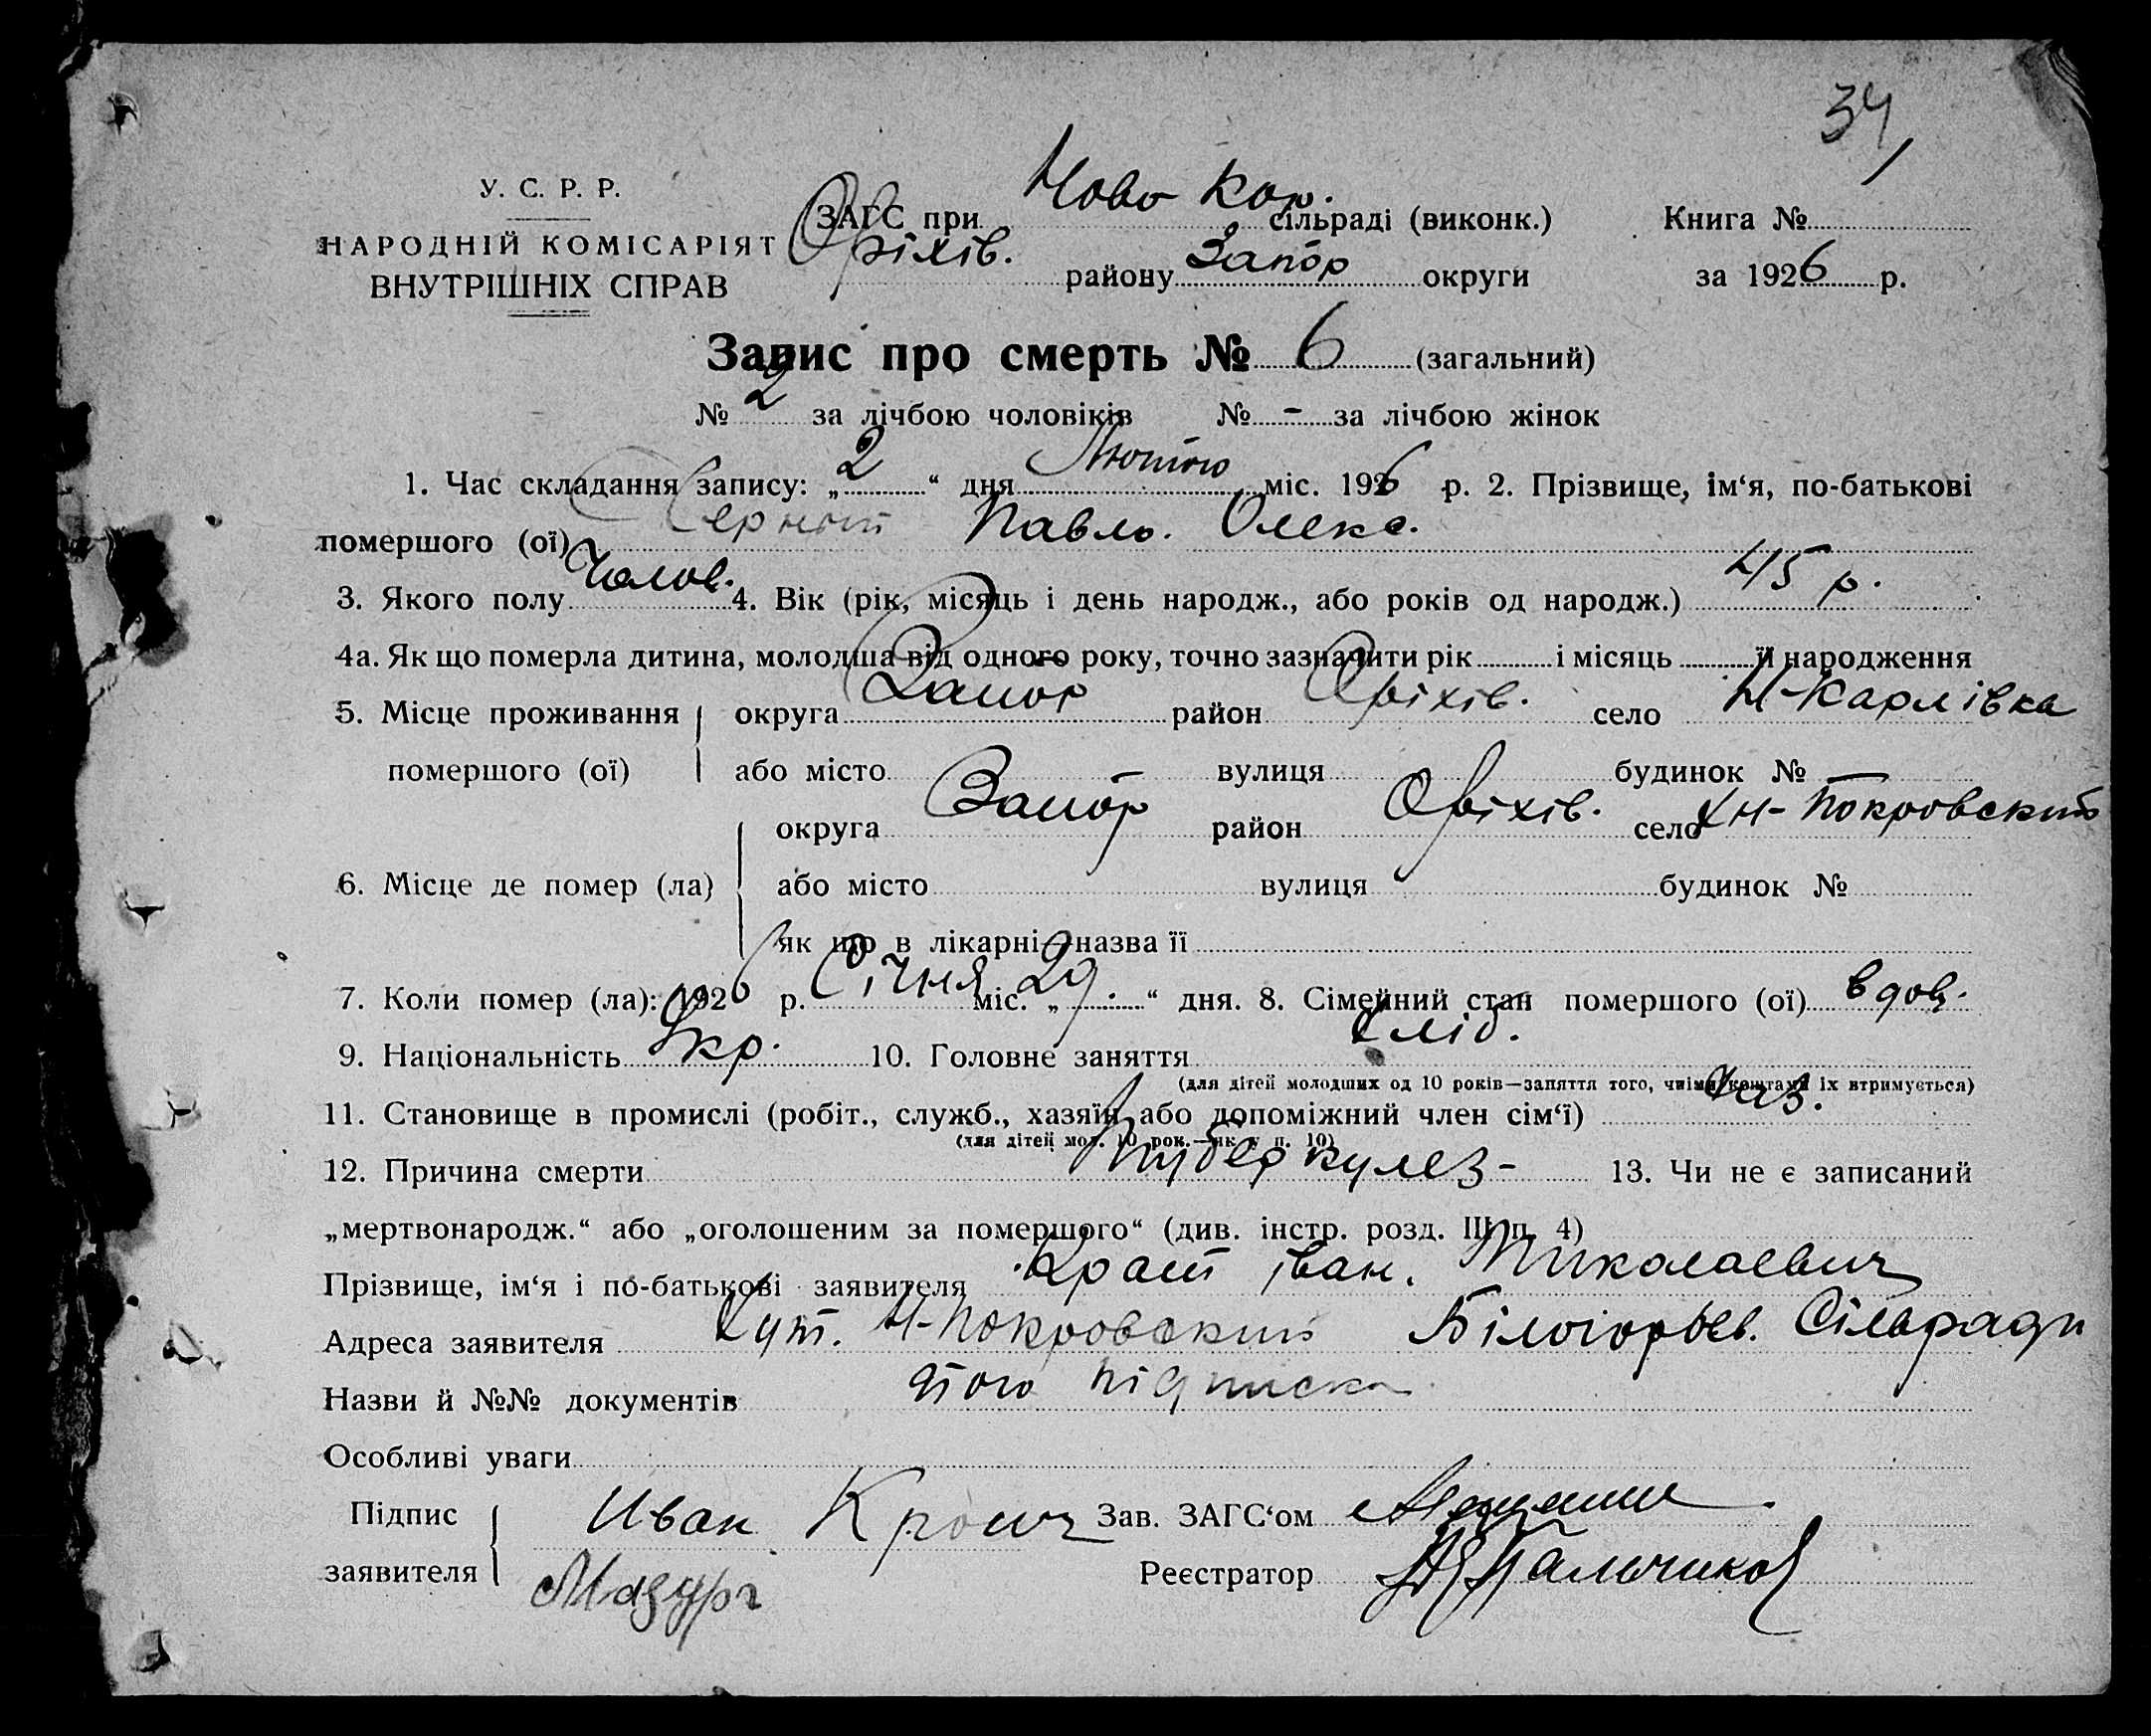 34
У. С. Р. Р.
НАРОДНІЙ КОМІСАРІЯТ
ВНУТРІШНІХ СПРАВ
ЗАГС при Ново Кар. сільраді (виконк.) Книга №
Оріхів. району Запор округи за 1926 р.
Запис про смерть № 6 (загальний)
№ 2 за лічбою чоловіків № - за лічбою жінок
1. Час складання запису: „2“ дня Лютого міс. 1926 р. 2. Прізвище, ім‘я, по-батькові
помершого (ої) Павло. Олекс.
3. Якого полу Чолов. 4. Вік (рік, місяць і день народж., або років од народж.) 45 р.
4а. Як що померла дитина, молодша від одного року, точно зазначити рік і місяць її народження
5. Місце проживання округа Запор район Оріхів. село Н-Карлівка
помершого (ої) або місто вулиця будинок №
округа Запор район Оріхів. село Х Н-Покровский
6. Місце де помер (ла) або місто вулиця будинок №
як що в лікарні—назва її
7. Коли помер (ла): 1926 р. Січня міс. „29.“ дня. 8. Сімейний стан помершого (ої) вдов.
9. Національність Укр. 10. Головне заняття Хліб.
(для дітей молодших од 10 років—заняття того, чиїми коштами їх втримується)
11. Становище в промислі (робіт., служб., хазяїн або допоміжний член сім‘ї) Хаз.
(для дітей мол. 10 рок.—як у п. 10)
12. Причина смерти Туберкулез - 13. Чи не є записаний
„мертвонародж.“ або „оголошеним за помершого“ (див. інстр. розд. III п. 4)
Прізвище, ім‘я і по-батькові заявителя Іван. Миколаевич
Адреса заявителя Хут. Н-Покровский Білогорьев. Сільради
Назви й №№ документів його підписка
Особливі уваги
Підпис Иван Зав. ЗАГС‘ом
заявителя Реєстратор